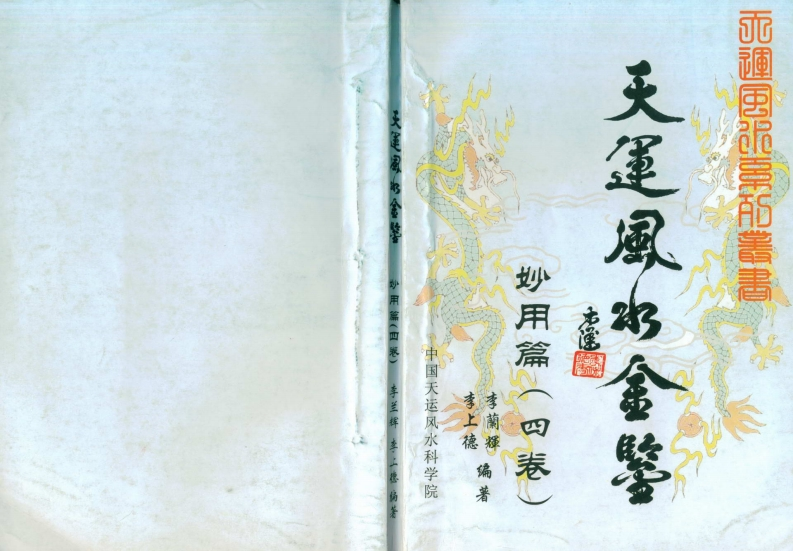 天運風水系列叢書
天運風水金鑒
妙用篇(四卷)
李蘭輝
李上德
编著
中国天运风水科学院
天運風水金鑒
妙用篇(四卷)
李兰辉 李上德 编著